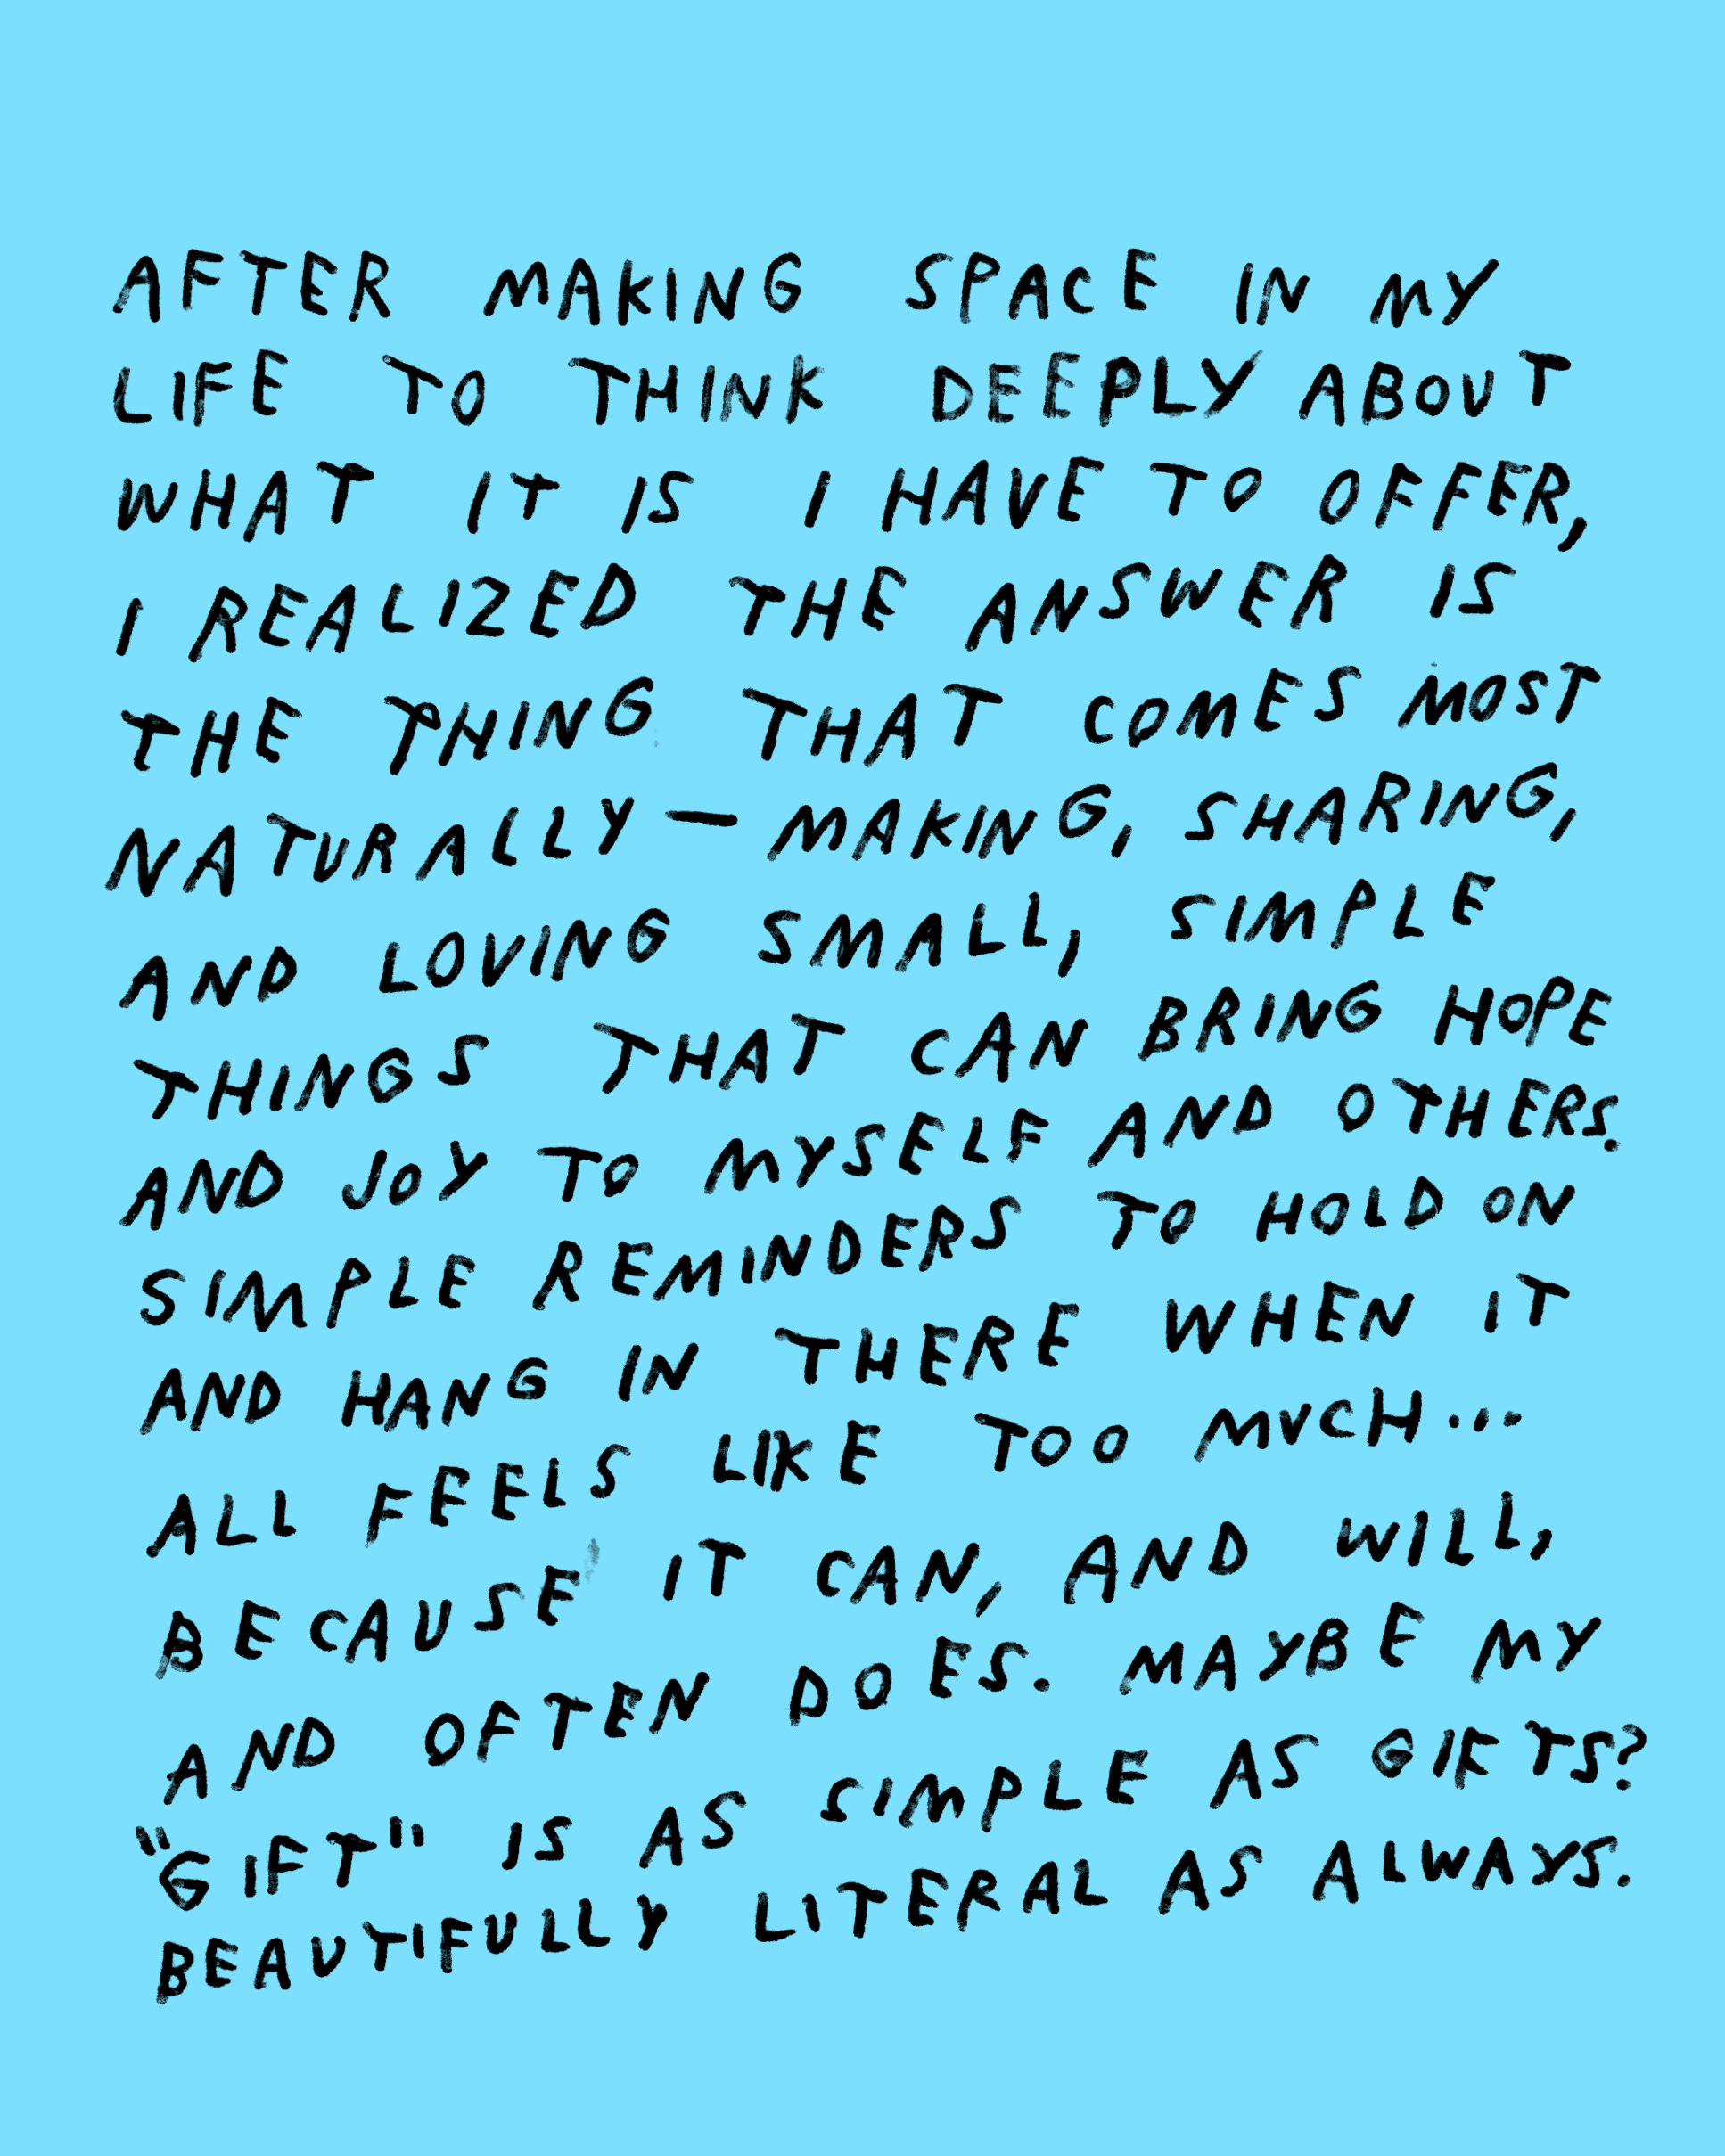 AFTER MAKING SPACE IN MY
LIFE TO THINK DEEPLY ABOUT
WHAT IT IS I HAVE TO OFFER,
I REALIZED THE ANSWER IS
THE THING THAT COMES MOST
NATURALLY — MAKING, SHARING,
AND LOVING SMALL, SIMPLE
THINGS THAT CAN BRING HOPE
AND JOY TO MYSELF AND OTHERS.
SIMPLE REMINDERS TO HOLD ON
AND HANG IN THERE WHEN IT
ALL FEELS LIKE TOO MUCH...
BECAUSE IT CAN, AND WILL,
AND OFTEN DOES. MAYBE MY
"GIFT" IS AS SIMPLE AS GIFTS?
BEAUTIFULLY LITERAL AS ALWAYS.